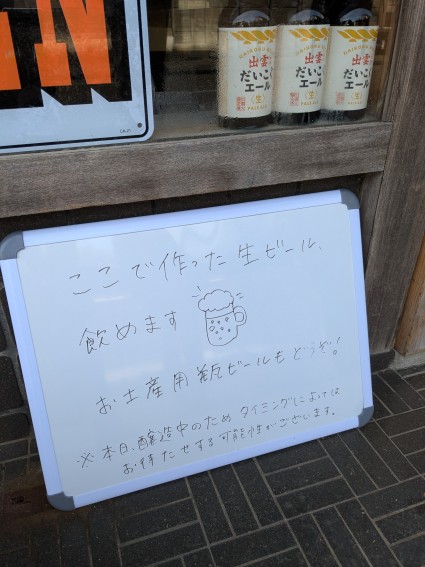 AN
出雲
だいこく
エール
〈生〉
PALE ALE
出雲
だいこく
エール
〈生〉
PALE ALE
出雲
だいこく
エール
〈生〉
PALE ALE
ここで作った生ビール、
飲めます
お土産用瓶ビールもどうぞ!
※本日、醸造中のためタイミングによっては
お待たせする可能性がございます。